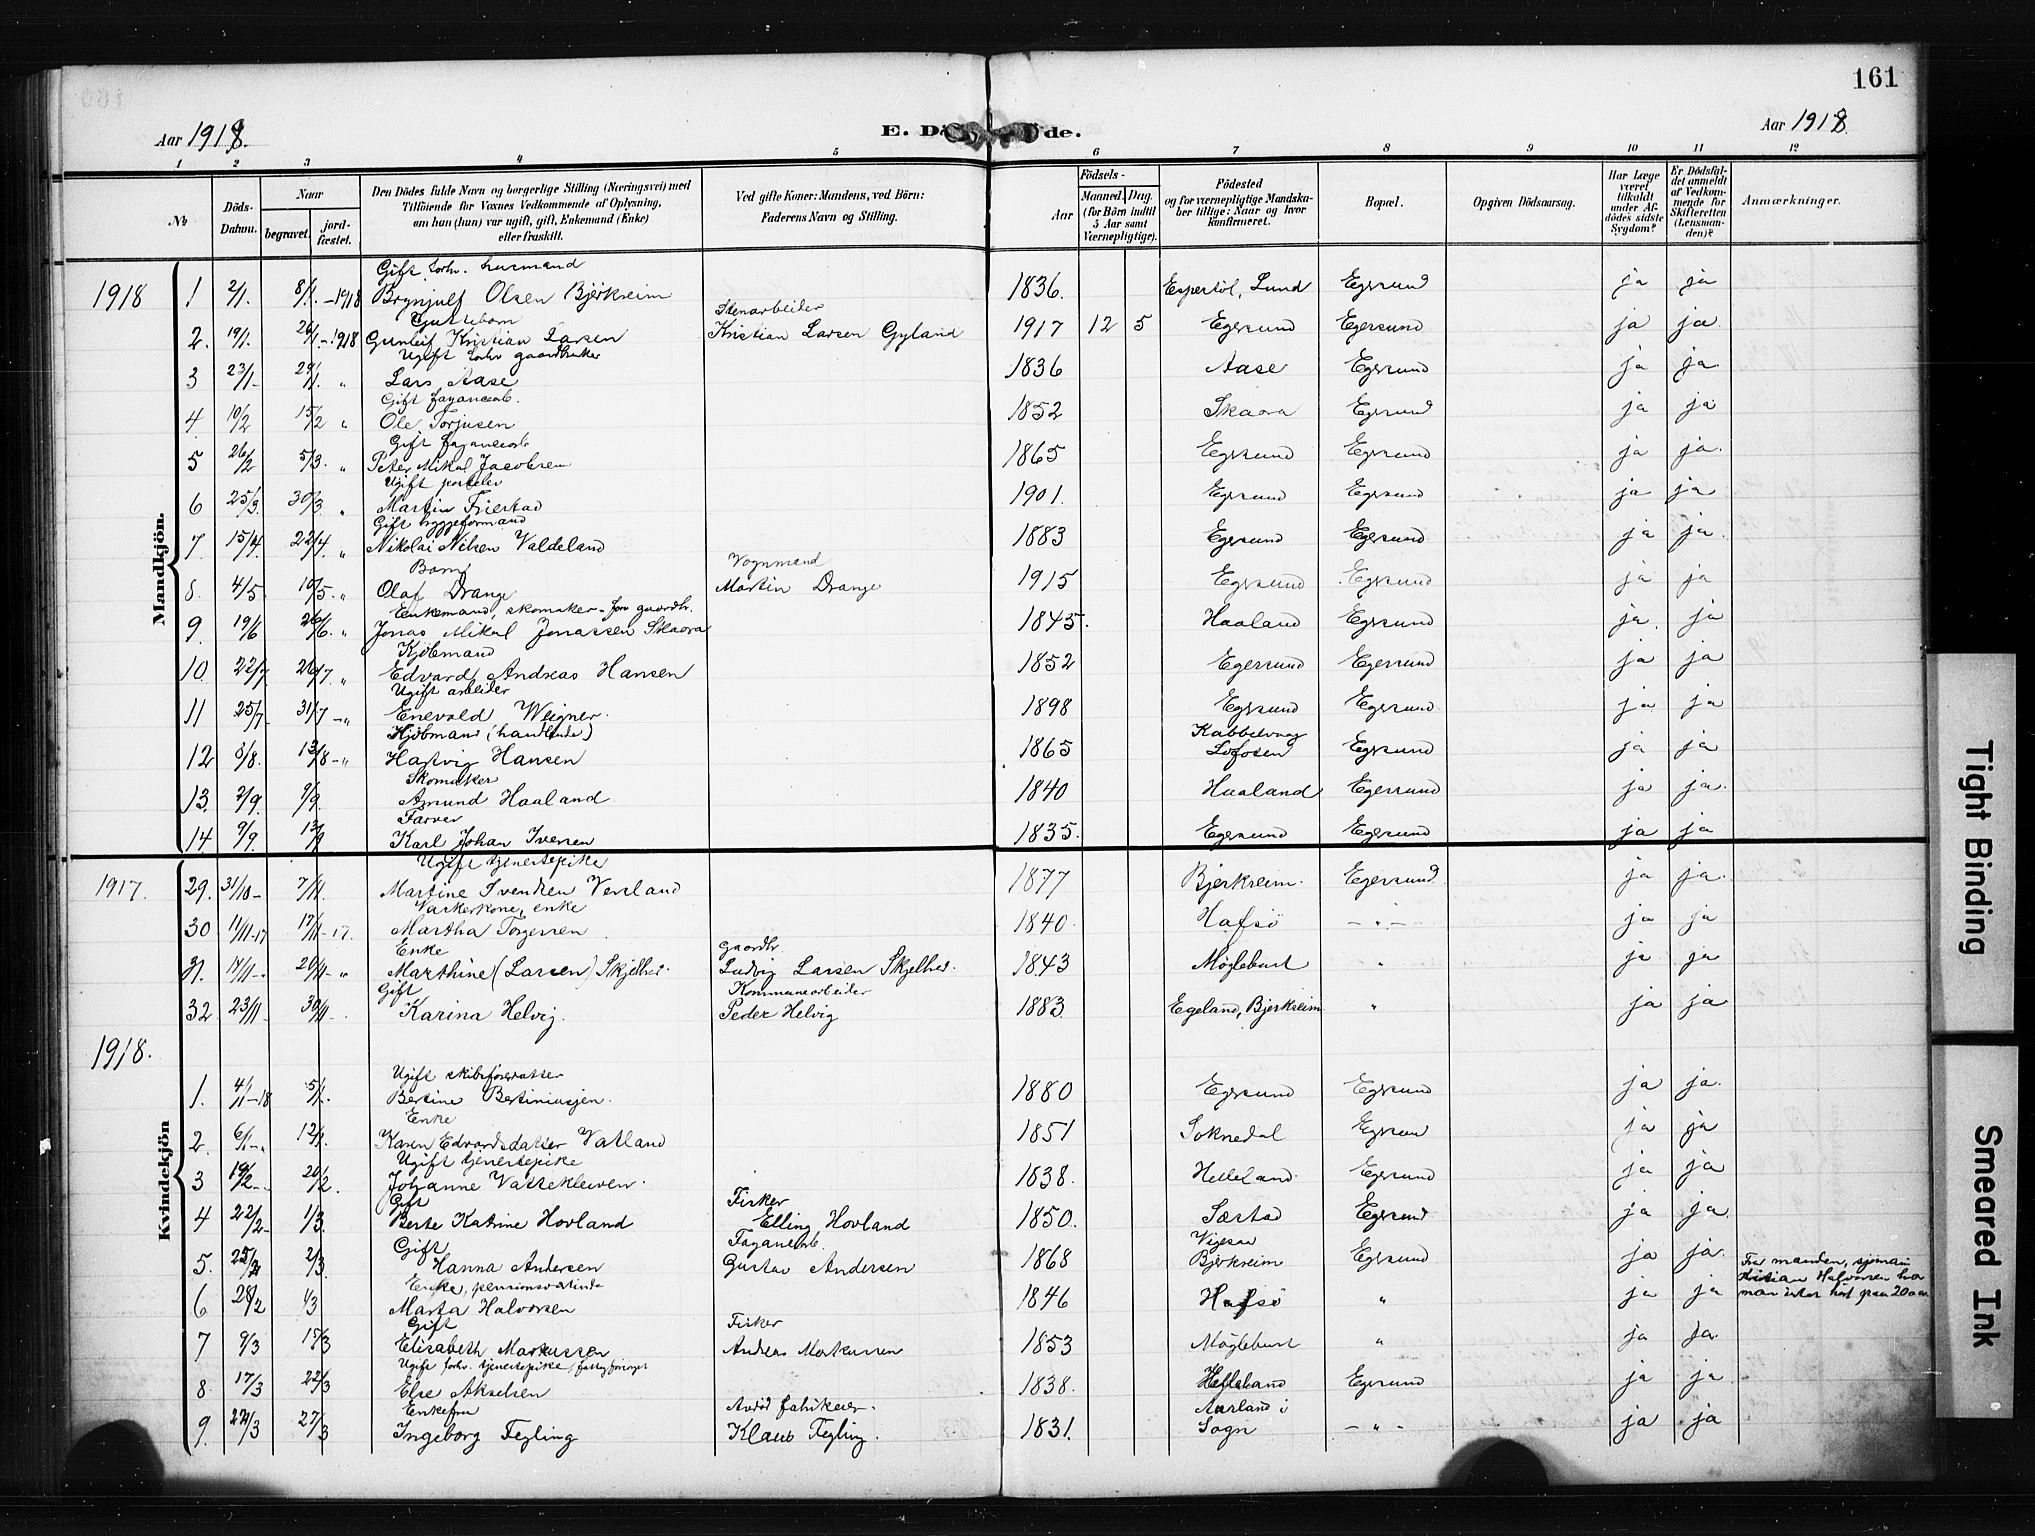 161
Aar 1918.
E. Dö de.
Aar 1918.
1 2 3 4 5 6 7 8 9 10 11 12
No
Döds-Datum.
Naar
begravet.
jord-fæstet.
Den Dödes fulde Navn og borgerlige Stilling (Næringsvei) med
Tilföiende for Voxnes Vedkommende af Oplysning,
om han (hun) var ugift, gift, Enkemand (Enke)
eller fraskilt.
Ved gifte Koner: Mandens, ved Börn:
Faderens Navn og Stilling.
Födsels-
Aar
Maaned. Dag.
(for Börn indtil
3 Aar samt
Værnepligtige).
Födested
og for værnepligtige Mandska-
ber tillige: Naar og hvor
konfirmeret.
Bopæl.
Opgiven Dödsaarsag.
Har Læge
været
tilkaldt
under Af-
dödes sidste
Sygdom?
Er Dödsfal-
det anmeldt
af Vedkom-
mende for
Skifteretten
(Lensman-
den)?
Anmærkninger.
Mandkjön.
Gift forhv. husmand
1918 1 2/1. 8/1. -1918 Brynjulf Olsen Bjerkreim 1836. Espertöl, Lund Egersund ja ja
Guttebarn Stenarbeider
2. 19/1. 26/1 -1918 Gunleif Kristian Larsen Kristian Larsen Gyland 1917 12 5 Egersund Egersund ja ja
Ugift forhv gaardbruker
3 23/1- 29/1. " Lars Aase 1836 Aase Egersund ja ja
Gift fayancearb.
4. 10/2 15/2 " Ole Torjusen 1852 Skaara Egersund ja ja
Gift fayancearb
5 26/2 5/3. " Peter Mikal Jacobsen 1865 Egersund Egersund ja ja.
Ugift postelev
6 25/3. 30/3 " Martin Frestad 1901. Egersund Egersund ja ja
Gift byggeformand
7. 15/4. 22/4. " Nikolai Nilsen Valdeland 1883 Egersund Egersund ja ja.
Barn Vognmand
8. 4/5 10/5. " Olaf Drange Martin Drange 1915 Egersund Egersund ja ja
Enkemand, skomaker - fhv gaardbr.
9. 19/6 26/6. " Jonas Mikal Jonassen Skaara 1845. Haaland Egersund ja. ja
Kjöbmand
10 22/7 26/7. " Edvard Andreas Hansen 1852 Egersund Egersund ja ja
Ugift arbeider
11 25/7. 31/7 -" Enevald Weigner. 1898 Egersund Egersund ja ja
Kjöbmand (handlende) Kabbelvaag
12 8/8. 13/8 -" Hartvig Hansen 1865 Lofoten Egersund ja ja
Skomaker
13. 2/9. 9/9. Amund Haaland 1840 Haaland Egersund ja ja.
Farver
14 9/9. 13/9 Karl Johan Iversen 1835. Egersund Egersund ja ja
Kvindekjön
Ugift tjenestepike
1917. 29. 31/10- 7/11. Martine Svendsen Versland 1877 Bjerkreim. Egersund ja ja.
Vaskerkone, enke
30 11/11-17 17/11-17. Martha Torgersen 1840. Hafsö - " - ja ja
Enke gaardbr.
31. 14/11- 20/11- " Marthine (Larsen) Skjelhei. Ludvig Larsen Skjelhei. 1843 Mögleburt " ja ja
Gift Kommunearbeider
32. 23/11- 30/11 Karina Helvig. Peder Helvig 1883. Egeland, Bjerkreim " ja ja
1918.
Ugift skibsförerdatter
1. 4/1-18 5/1. Bertine Bertiniusjen. 1880 Egersund Egersund ja ja.
Enke
2. 6/1-" 12/1. Karen Edvardsdatter Vatland 1851 Soknedal Egersun ja ja
Ugift tjenestepike
3 14/2-- 20/2. Johanne Vattekleiven. 1838. Helleland Egersund ja ja
Gift Fisker
4 22/2- 1/3. Berte Katrine Hovland Elling Hovland 1850. Særstad Egersund ja ja.
Gift Fayancearb. Vigesaa
5. 25/2 2/3. Hanna Andersen Gustav Andersen 1868 Bjerkreim Egersund ja ja.
Enke, pensionsværtinde
6 28/2 4/3 Marta Halvorsen 1846 Hafsö " ja ja
Fra manden, sjömann
Kristian Halvorsen har
man intet hört paa 20 aar
Gift Fisker
7 9/3 15/3 Elisabeth Markussen Andreas Markussen 1853 Mögleburt " ja ja.
Ugift forhv. tjenestepike, fattigforsørget
8. 17/3 22/3 Else Akselsen 1838. Helleland Egersund ja ja.
Enkefru Avdöd fabrikeier. Aurland i
9. 22/3 27/3 Ingeborg Fegling Klaus Fegling. 1831. Sogn - " - ja ja
Tight Binding
Smeared Ink